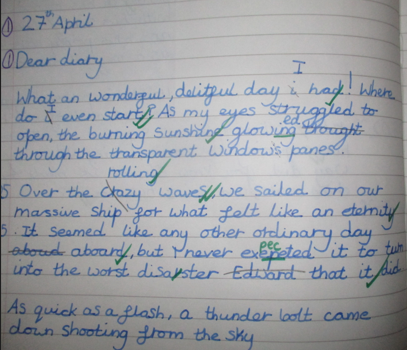 ① 27th April
① Dear diary
I
What an wonderful, delitful day i had! Where
do I even start? As my eyes struggled to
ed
open, the burning sunshine glowing thought
through the transparent window's panes.
rolling
5 Over the crazy waves, we sailed on our
massive ship for what felt like an eternity
5. It seemed like any other ordinary day
aboud aboard, but I never expeted it to turn
pec
into the worst disaster Edward that it did
As quick as a flash, a thunder bolt came
down shooting from the sky